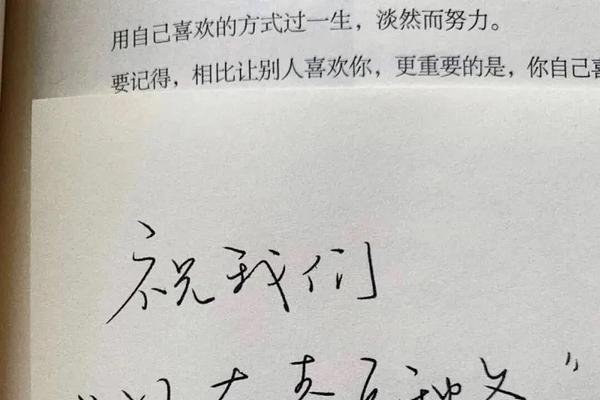 用自己喜欢的方式过一生，淡然而努力。
要记得，相比让别人喜欢你，更重要的是，你自己喜
祝我们